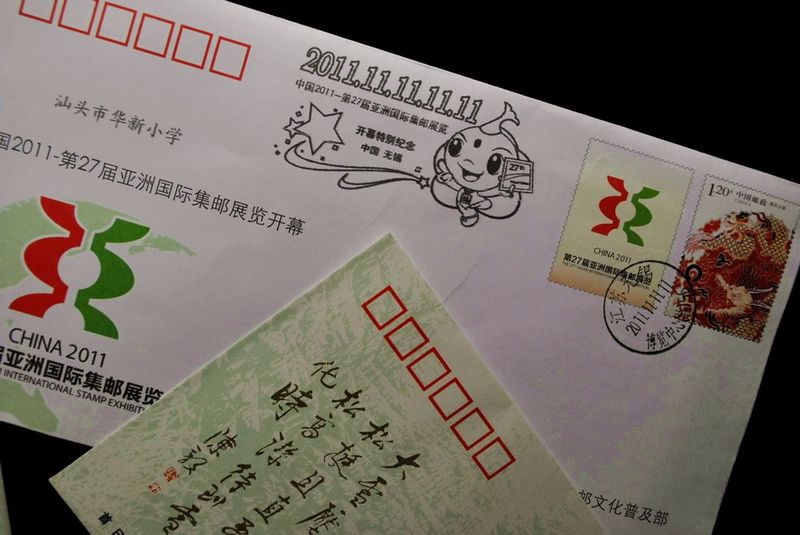 2011.11.11.11.11.11
中国2011-第27届亚洲国际集邮展览
开幕特别纪念
中国 无锡
27th
汕头市华新小学
国2011-第27届亚洲国际集邮展览开幕
CHINA 2011
届亚洲国际集邮展览
INTERNATIONAL STAMP EXHIBIT
CHINA 2011
第27届亚洲国际集邮展览
THE 27TH ASIAN INTERNATIONAL STAMP EXHIBITION
1.20元 中国邮政
CHINA
江苏无锡
2011.11.11.11
博览中心
大雪壓
松挺且直
松高潔待到雪
化時 陳毅
首日
邮文化普及部